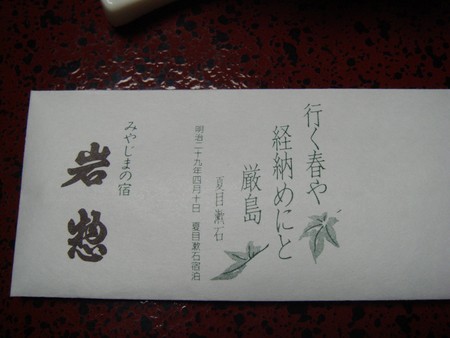 行く春や
経納めにと
厳島
夏目漱石
明治二十九年四月十日 夏目漱石宿泊
みやじまの宿
岩惣